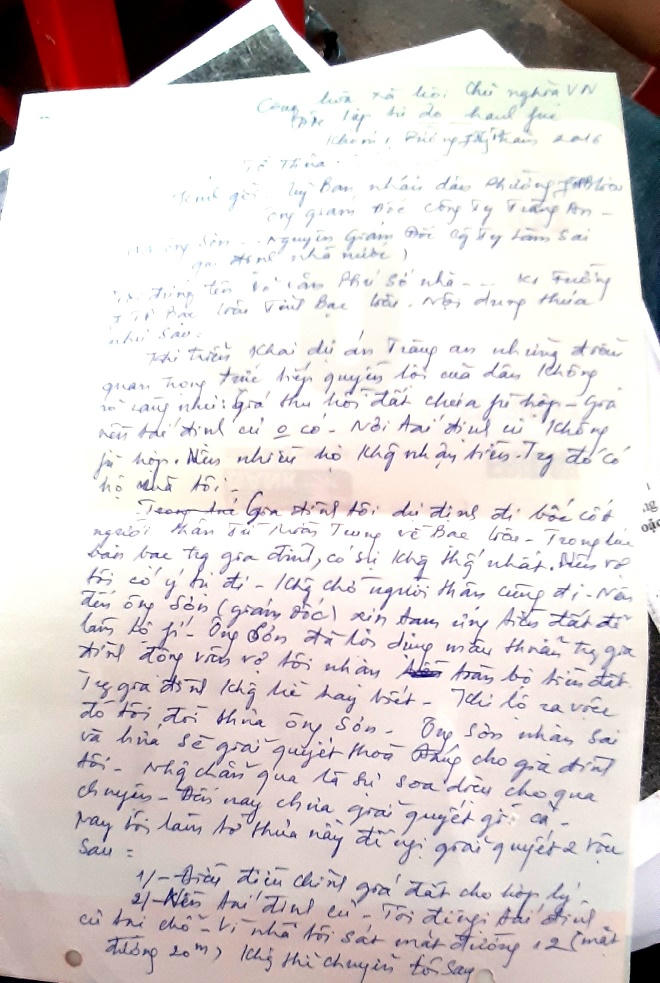 Cộng hòa xã hội Chủ nghĩa VN
Độc lập tự do hanh fuc
2016
Tờ Thưa
Kính gởi: Uỷ Ban nhân dân Phường
ông giám Đốc Công Ty Tràng An -
ông Sơn - Nguyên Giám Đốc Cty làm sai
qui định nhà nước)
Tôi đứng tên Số nhà ... Phường
TP Bạc liêu Tỉnh Bạc liêu. Nội dung thưa
như sau:
Khi triển khai dự án Tràng an nhưng điều
quan trọng trức tiếp quyền lời của dân không
rõ ràng như: Giá thu hồi đất chưa fù hợp - Giá
nền tái định cư o có - Nơi tái định cư không
fù hợp. Nên nhiều hộ khg nhận tiền. Trg đó có
hộ nhà tôi -
Gia đình tôi dự định đi bốc cốt
người thân Từ Miền Trung về Bac liêu - Trong lúc
bàn bạc trg gia đình, có sự khg thg nhất. Nên vợ
tôi cố ý tự đi - Khg chờ người thân cùng đi - Nên
đến ông Sơn (giám Đốc) xin tam ứng tiền đất để
làm lộ fí - Ông Sơn đã lời dụng mâu thuẫn trg gia
đình động viên vợ tôi nhận toàn bộ tiền đất
Trg gia đình khg hề hay biết - Khi lộ ra việc
đó tôi đòi thưa ông Sơn - Ông Sơn nhận sai
và hứa sẽ giải quyết thoả đáng cho gia đình
tôi - Nhg chẳn qua là sự soa diệu cho qua
chuyện - Đến nay chưa giải quyết gì cả -
Nay tôi làm tờ thưa này đề nghị giải quyết 2 việc
Sau:
1/- điều chỉnh giá đất cho hợp lý -
2/- Nền tái định cư - Tôi đề nghị tái định
cư tại chổ - Vì nhà tôi sát mặt đường 12 (mặt
đường 20m) Khg thể chuyển tôi sang